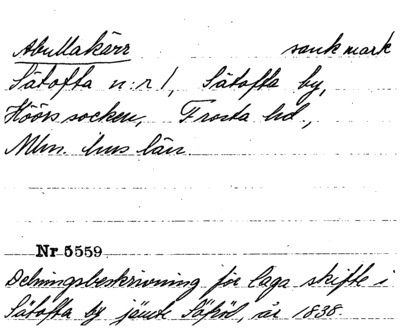 Abullakärr sank mark
Sätofta n:r 1, Sätofta by,
Höörs socken, Frosta hd.,
Mlm. hus län.
Nr 5559
Delningsbeskrivning för laga skifte i
Sätofta by jämte , år 1838.